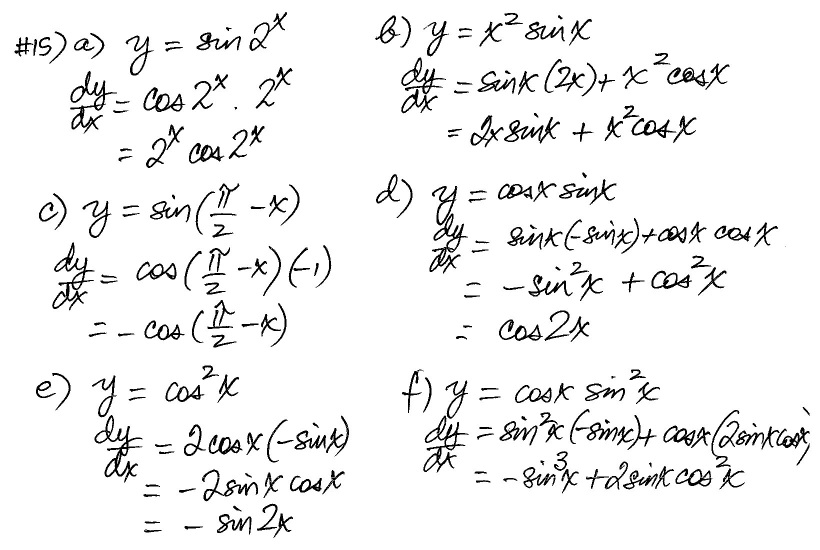 #15) a) y = sin 2^x
dy/dx = cos 2^x . 2^x
= 2^x cos 2^x
b) y = x² sin x
dy/dx = sin x (2x) + x² cos x
= 2x sin x + x² cos x
c) y = sin(π/2 - x)
dy/dx = cos(π/2 - x)(-1)
= - cos(π/2 - x)
d) y = cos x sin x
dy/dx = sin x (-sin x) + cos x cos x
= - sin² x + cos² x
= cos 2x
e) y = cos² x
dy/dx = 2 cos x (-sin x)
= -2 sin x cos x
= - sin 2x
f) y = cos x sin² x
dy/dx = sin² x (-sin x) + cos x (2 sin x cos x)
= - sin³ x + 2 sin x cos² x